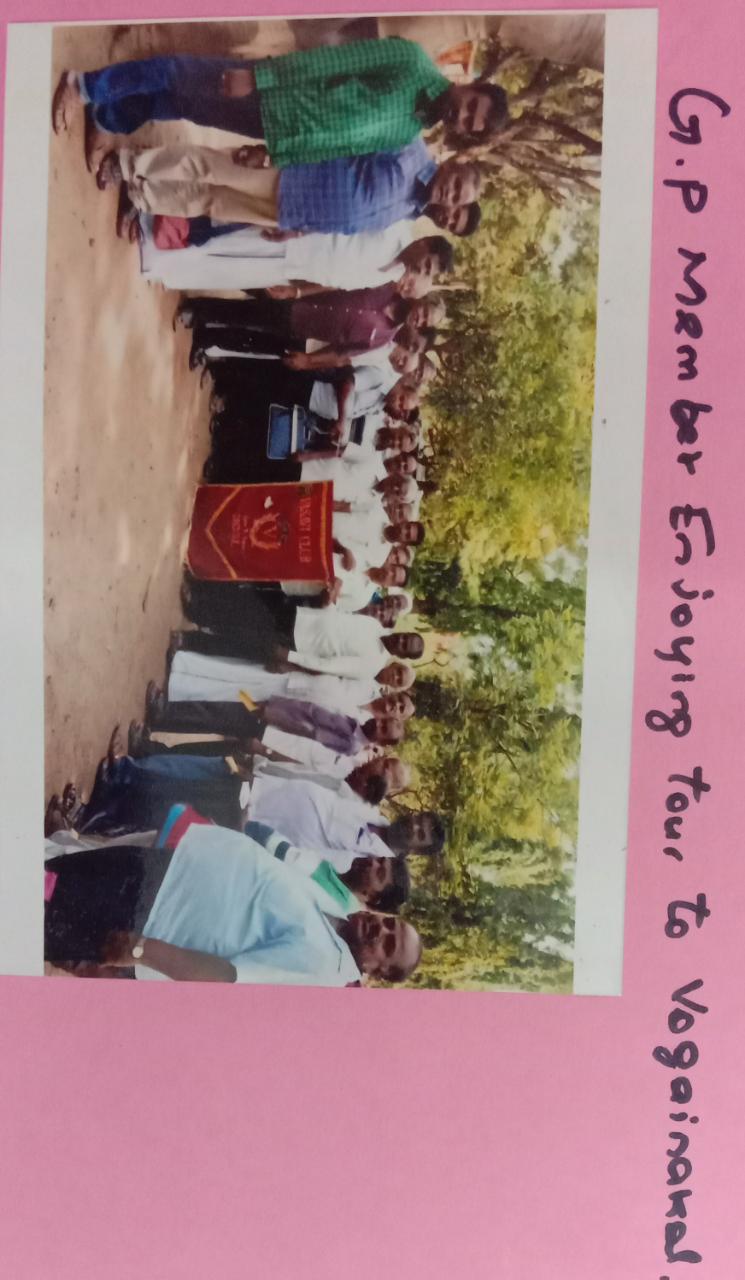 G.P Member Enjoying tour to Vogainakal.
CLUB